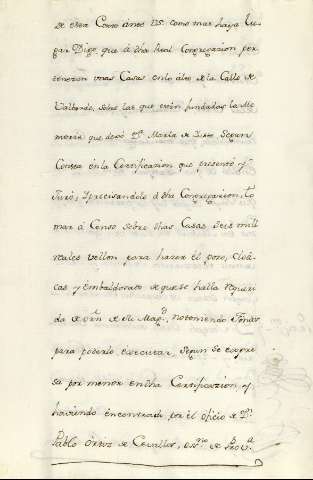 de esta Corte ante VS. como mas haya lu-
gar Digo que á dha Real Congregacion per-
tenecen unas Casas en lo alto de la Calle de
Valverde, sobre las que están fundadas la Me-
moria que dexó Dª. Maria de Segun
Consta en la Certificazion que presento y
Juro, y precisandole á dha Congregacion to-
mar á Censo sobre dhas Casas seis mill
reales vellon para hazer el pozo,
cas y embaldosado de que se halla requeri-
da de Orn de S. Mag.ᵈ, no teniendo fondos
para poderlo executar, segun se expre-
sa por menor en dha Certificazion, y
haviendo encontrado por el oficio de Dn.
Pablo Ortiz de Cevallos, es.ⁿᵒ de Prov.ª